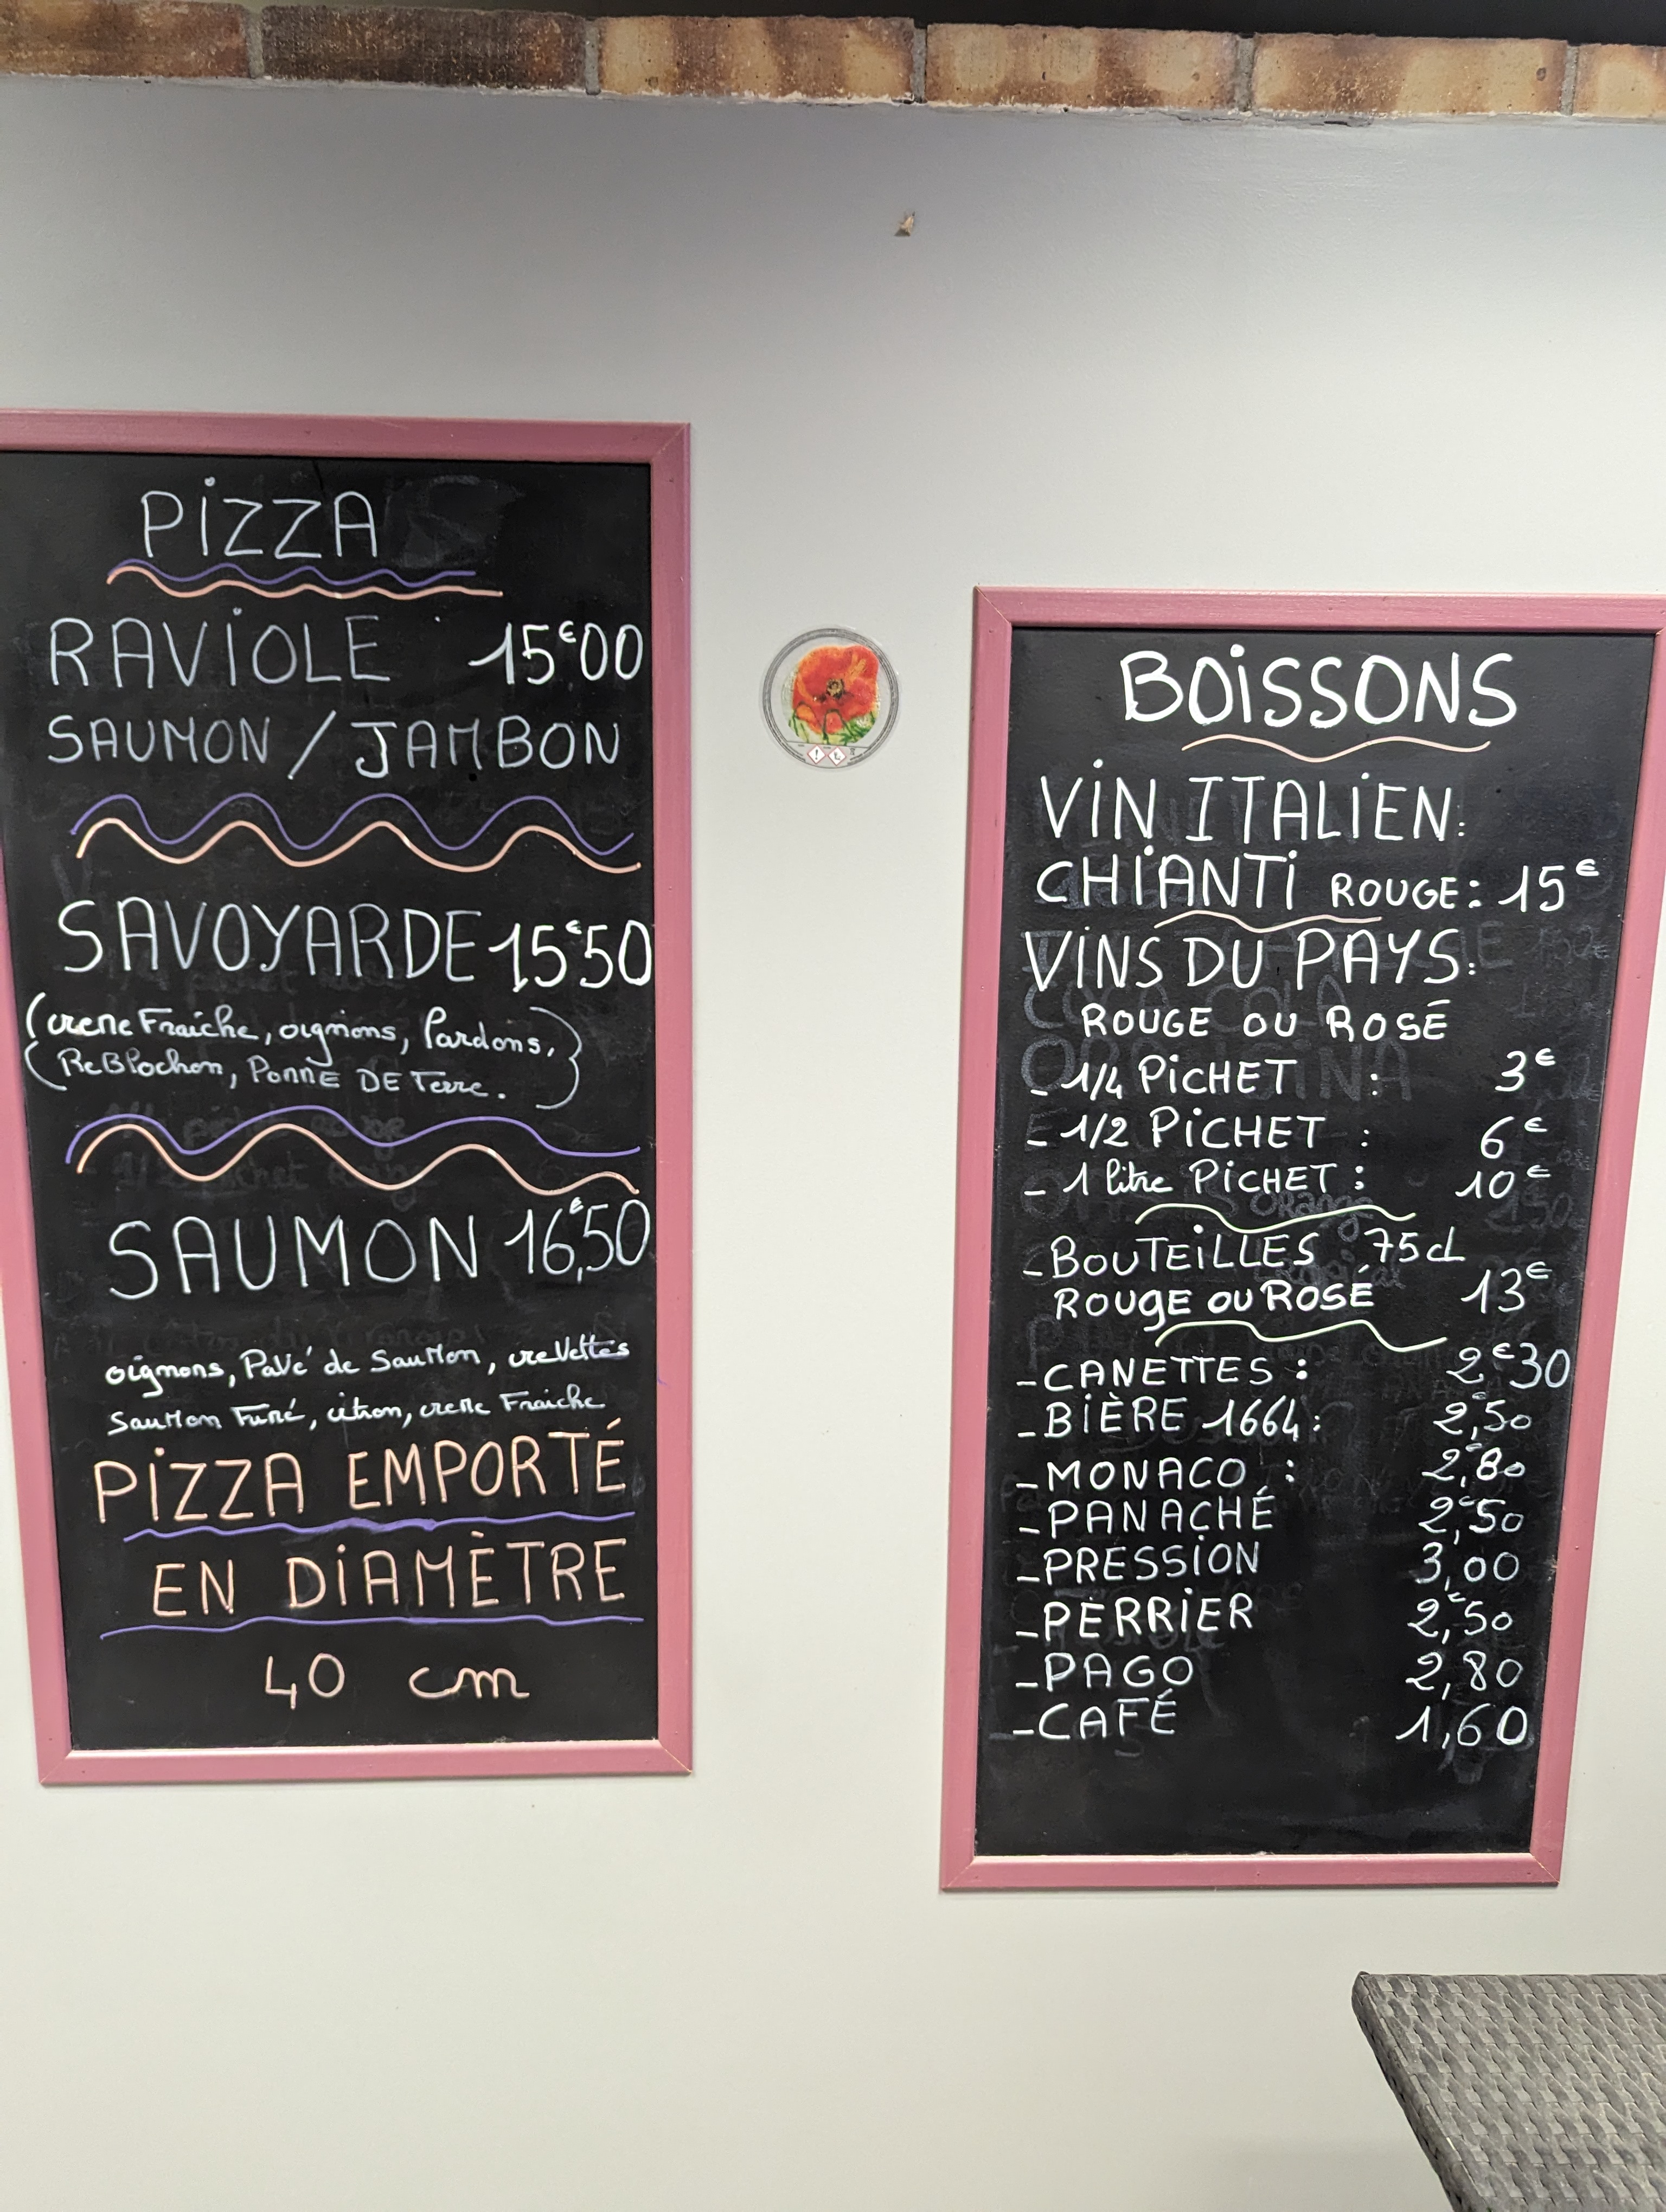 PIZZA
RAVIOLE 15€00
SAUMON / JAMBON
SAVOYARDE 15€50
(creme Fraiche, oignons, Lardons,
ReBlochon, Pomme DE Terre.)
SAUMON 16,€50
oignons, Pavé de SauMon, creVettes
SauMon Fumé, citron, creme Fraiche
PIZZA EMPORTÉ
EN DIAMÈTRE
40 cm
BOISSONS
VIN ITALIEN:
CHIANTI ROUGE: 15€
VINS DU PAYS:
ROUGE OU ROSÉ
- 1/4 PICHET : 3€
- 1/2 PICHET : 6€
- 1 litre PICHET : 10€
- BOUTEILLES 75cl
ROUGE OU ROSÉ 13€
- CANETTES : 2€30
- BIÈRE 1664 : 2,€50
- MONACO : 2,€80
- PANACHÉ 2,€50
- PRESSION 3,00
- PERRIER 2,€50
- PAGO 2,80
- CAFÉ 1,60